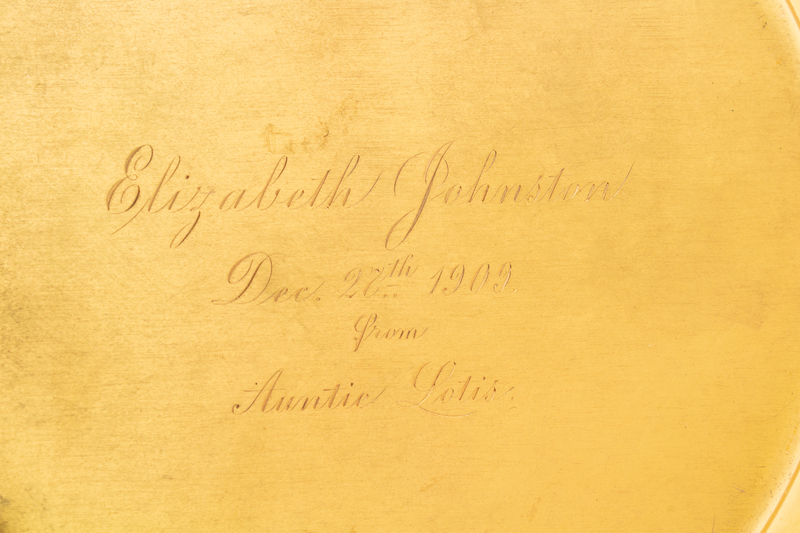 Elizabeth Johnston
Dec. 27th 1909.
from
Auntie Lotis.